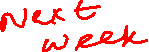 Next
week